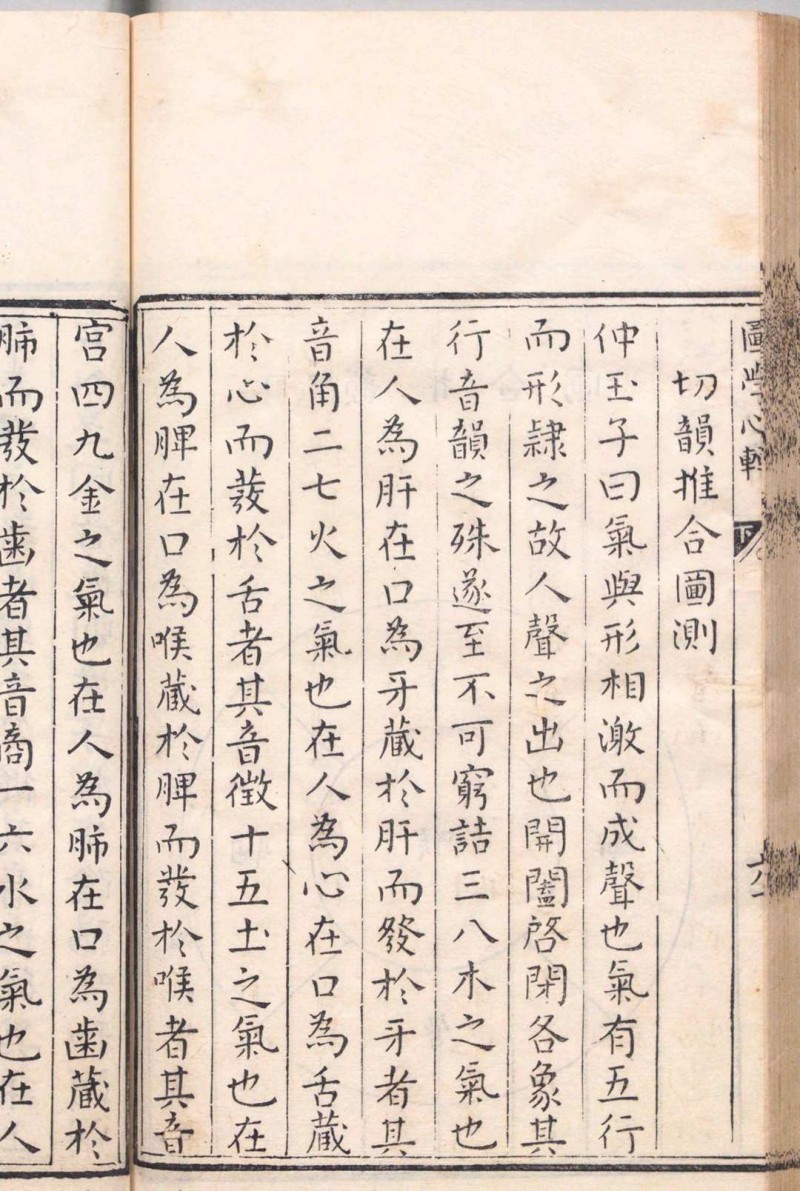 圖學心軽 下
切韻推合圖測
仲玉子曰氣與形相激而成聲也氣有五行
而形隷之故人聲之出也開闔啓閉各象其
行音韻之殊遂至不可窮詰三八木之氣也
在人為肝在口為牙藏於肝而發於牙者其
音角二七火之氣也在人為心在口為舌藏
於心而發於舌者其音徵十五土之氣也在
人為脾在口為喉藏於脾而發於喉者其音
宮四九金之氣也在人為肺在口為齒藏於
肺而發於齒者其音商一六水之氣也在人